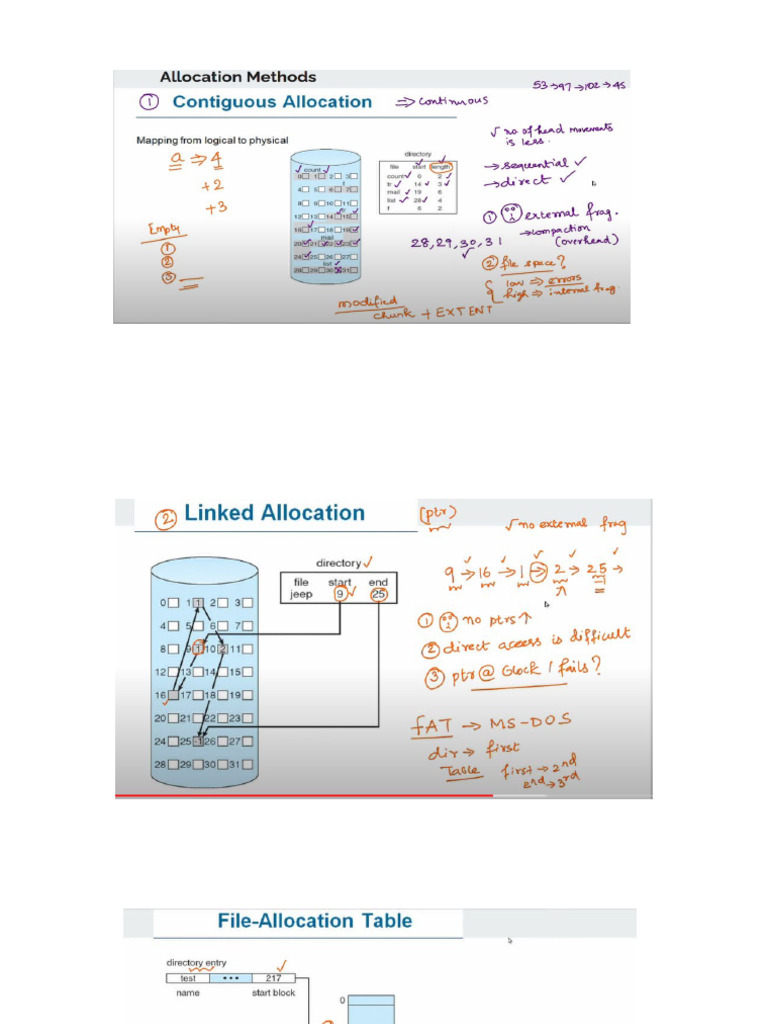 Allocation Methods
53→97→102→45
① Contiguous Allocation ⇒ continuous
Mapping from logical to physical
a ⇒ 4
+2
+3
Empty
①
②
③
count
0 1 2 3
f
4 5 6 7
8 9 10 11
tr
12 13 14 15
16 17 18 19
mail
20 21 22 23
24 25 26 27
list
28 29 30 31
directory
file start length
count 0 2
tr 14 3
mail 19 6
list 28 4
f 6 2
28, 29, 30, 31
√ no of head movements
is less.
→ sequential ✓
→ direct ✓
① external frag.
→ compaction
(overhead)
② file space?
low ⇒ errors
high ⇒ internal frag.
modified
chunk + EXTENT
② Linked Allocation (ptr)
√ no external frag
directory
file start end
jeep 9 25
0 1 2 3
4 5 6 7
8 9 10 11
12 13 14 15
16 17 18 19
20 21 22 23
24 25 26 27
28 29 30 31
9 → 16 → 1 → 2 → 25 →
① no ptrs ↑
② direct access is difficult
③ ptr @ block 1 fails?
FAT → MS-DOS
dir → first
Table first → 2nd
2nd → 3rd
File-Allocation Table
directory entry
test ••• 217
name start block
0